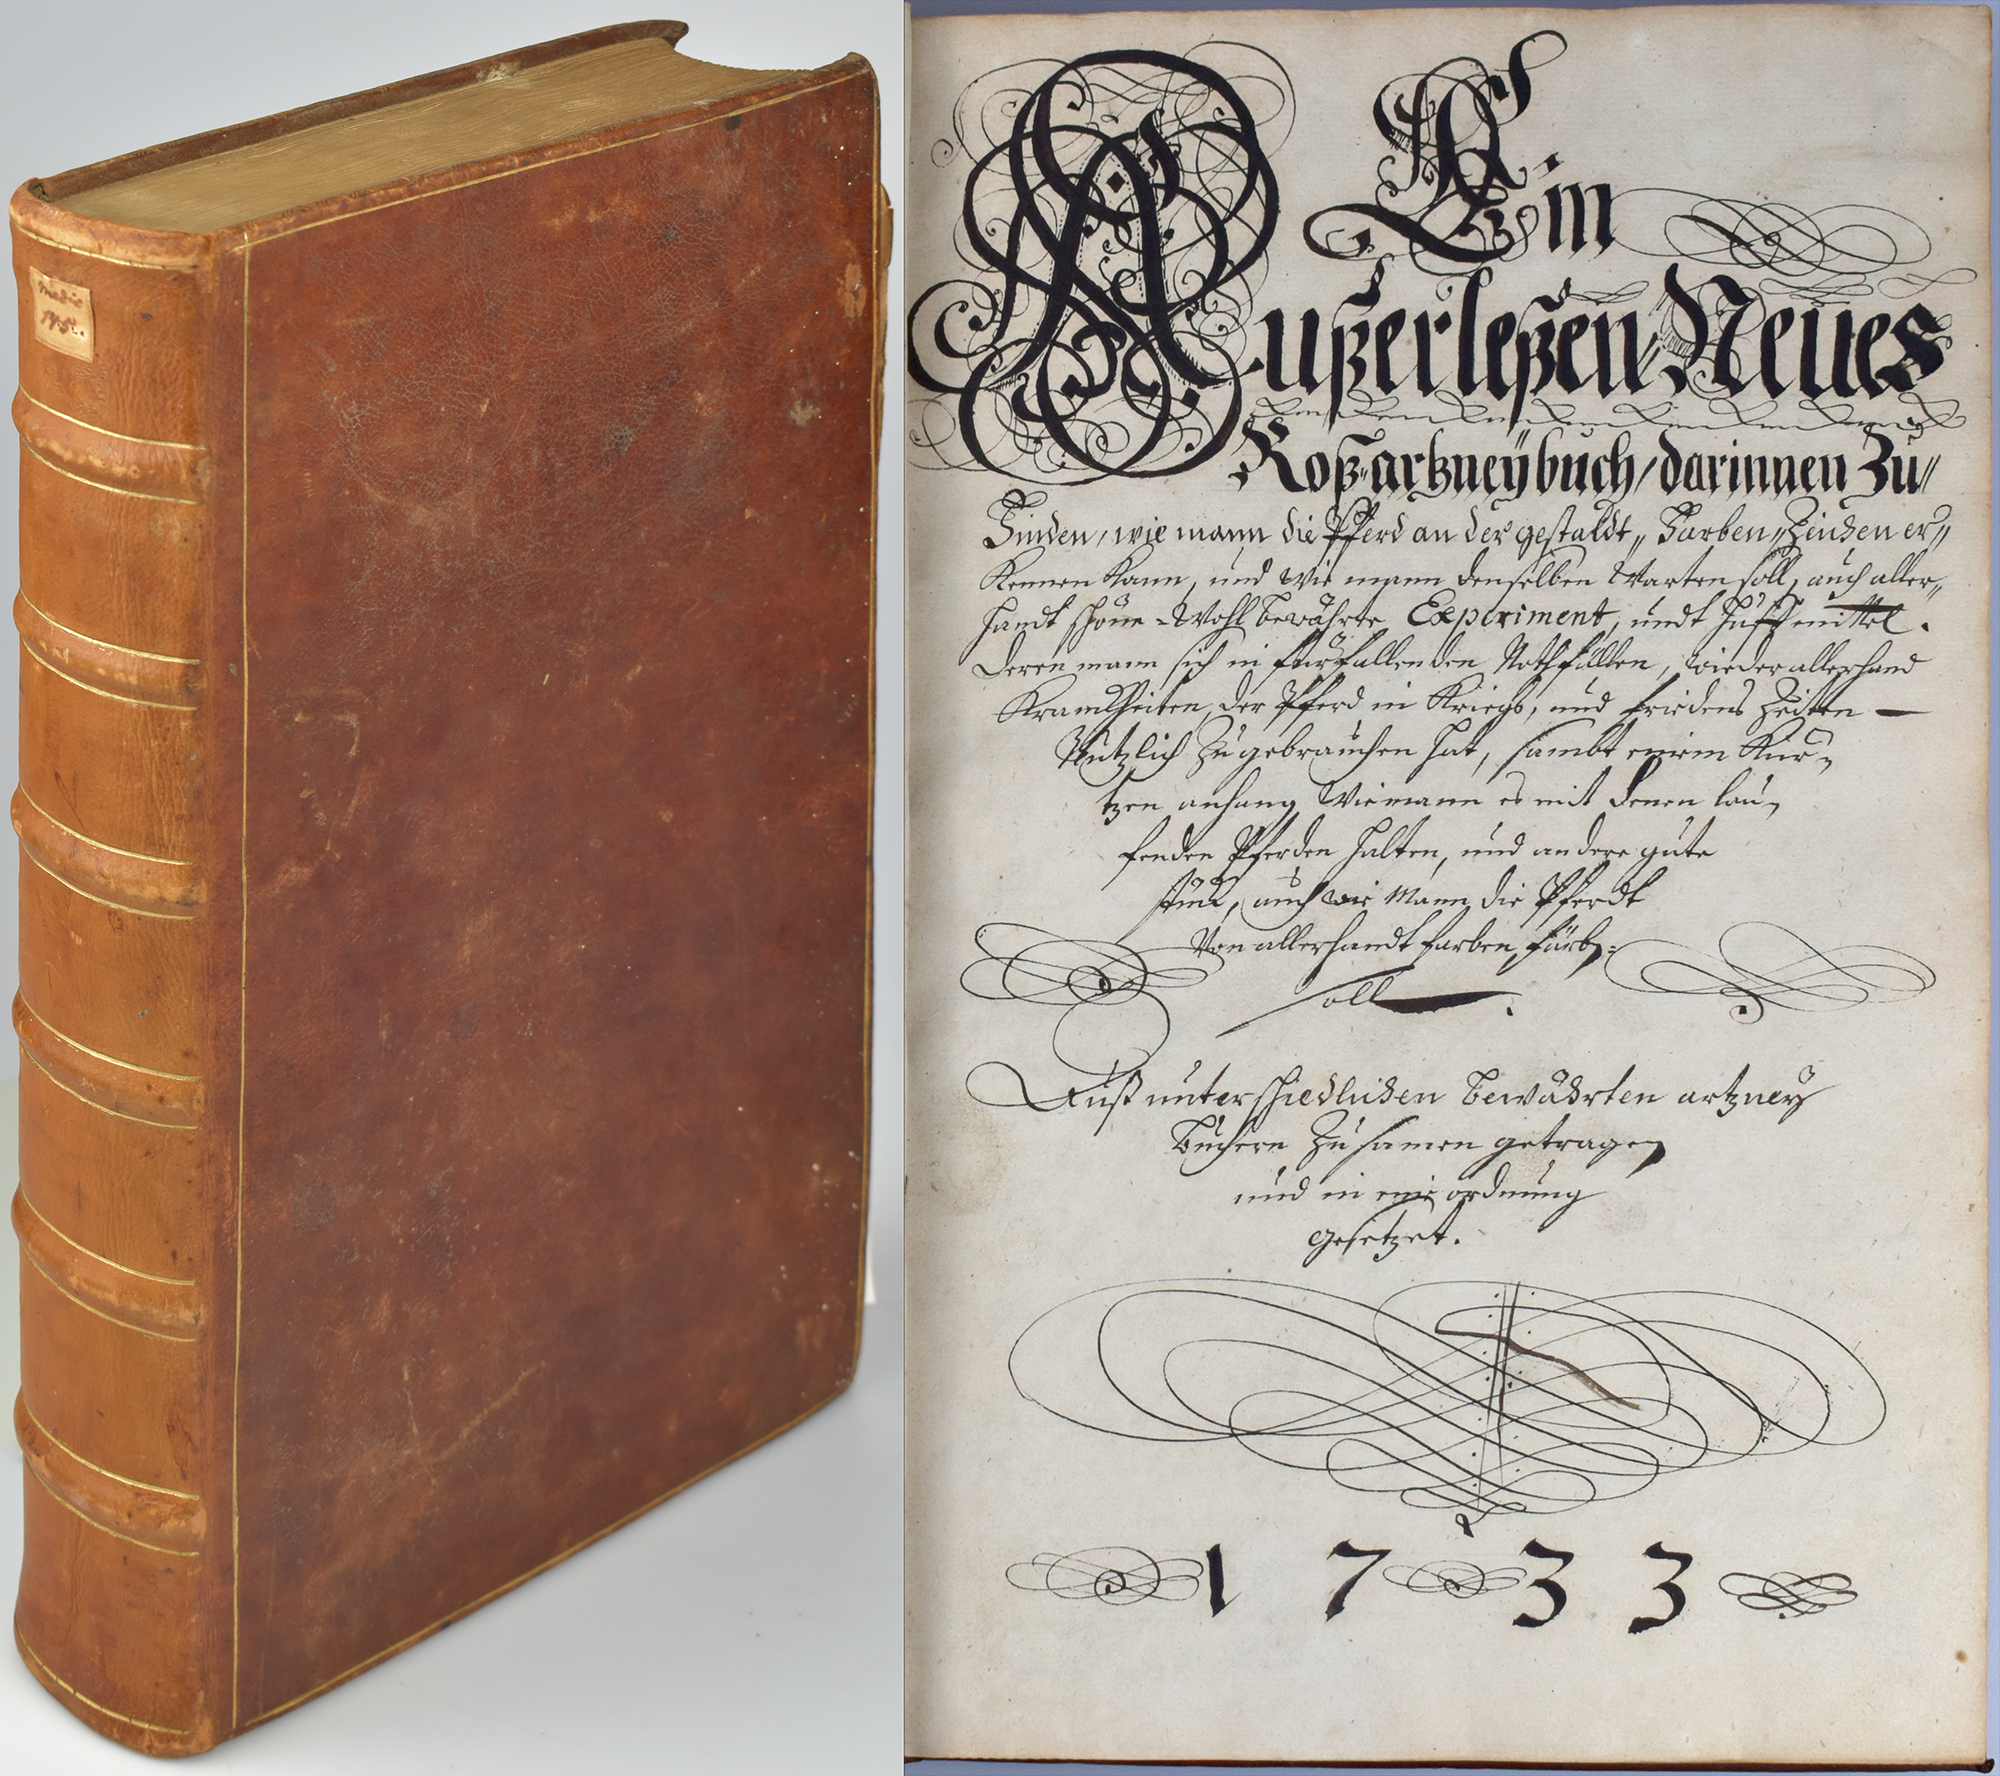 Ein
Außerleßen Neues
Roß-artzneÿbuch/darinnen Zu〃
Finden, wie mann die Pferd an der gestaldt〃 Farben〃Zeichen er〃
Kennen Kann, und wie mann denselben Warten soll, auch aller〃
handt schöne Wohl bewährte Experiment, undt Hüffmittel.
deren mann sich in fürfallenden Nothfällen, wieder allerhand
Kranckheiten der Pferd in Kriegs, und friedens Zeiten
Nützlich Zugebrauchen hat, sambt einem Kur-
tzen anhang Wie mann es mit denen lau-
fenden Pferden halten, und andere güte
stuck, auch wie Mann die Pferdt
Von allerhandt farben färb:
soll.
Auß unterschiedlichen bewährten artzneÿ
büchern Zusamen getragen
und in eine ordnung
gesetzet.
1 7 3 3